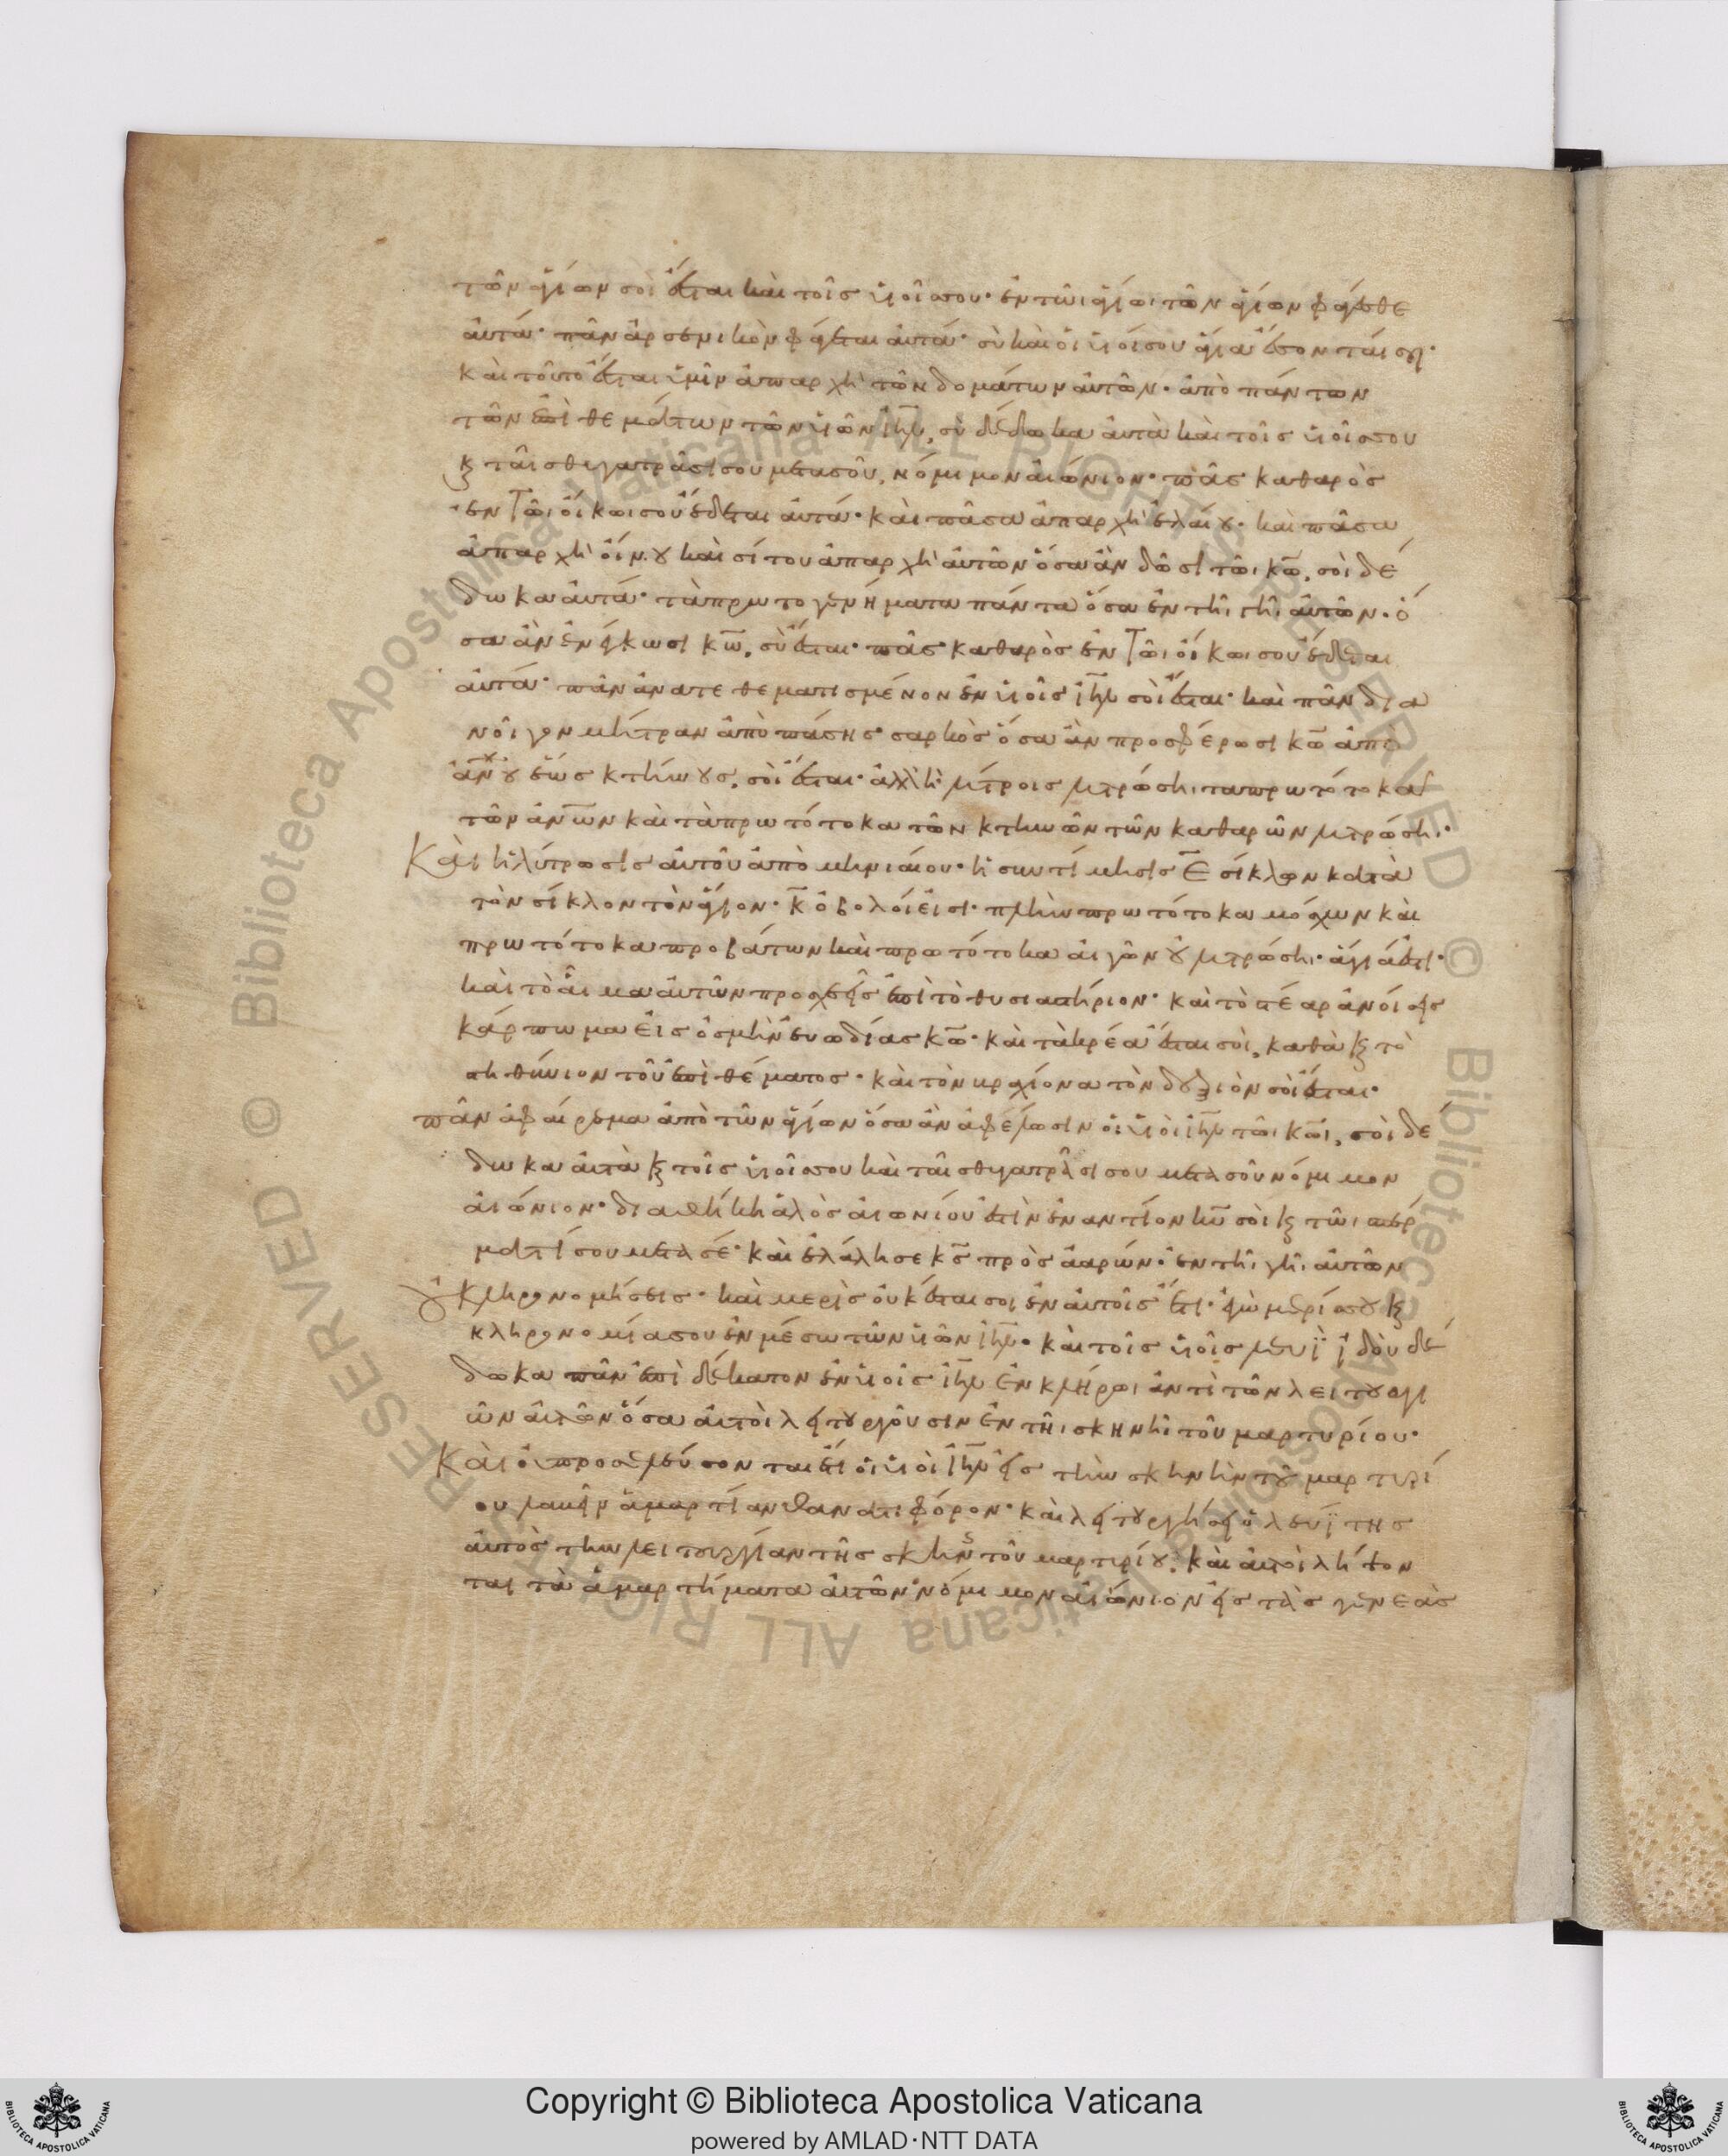 τῶν ἁγίων σοὶ ἔσται καὶ τοῖς υἱοῖς σου· ἐν τῶι ἁγίωι τῶν ἁγίων φάγεσθε
αὐτά· πᾶν ἀρσενικὸν φάγεται αὐτά· σὺ καὶ οἱ υἱοί σου ἅγια ἔσονταί σοι·
καὶ τοῦτο ἔσται ὑμῖν ἀπαρχὴ τῶν δομάτων αὐτῶν· ἀπὸ πάντων
τῶν ἐπιθεμάτων τῶν υἱῶν ἰηλ, σὺ δέδωκα αὐτὰ καὶ τοῖς υἱοῖς σου
κ ταῖς θυγατράσι σου μετὰ σοῦ, νόμιμον αἰώνιον· πᾶς καθαρὸς
ἐν τῶι οἴκωι σου ἔδεται αὐτά· καὶ πᾶσα ἀπαρχὴ ἐλαίου· καὶ πᾶσα
ἀπαρχὴ οἴνου καὶ σίτου ἀπαρχὴ αὐτῶν ὅσα ἂν δῶσι τῶι κω, σοὶ δέ
δωκα αὐτά· τὰ πρωτογενήματα πάντα ὅσα ἐν τῆι γῆι αὐτῶν· ὅ
σα ἂν ἐνέγκωσι κω, σὺ ἔσται· πᾶς καθαρὸς ἐν τῶι οἴκωι σου ἔδεται
αὐτά· πᾶν ἀνατεθεματισμένον ἐν υἱοῖς ἰηλ σοὶ ἔσται· καὶ πᾶν δια
νοῖγον μήτραν ἀπὸ πάσης σαρκὸς ὅσα ἂν προσφέρωσι κω ἀπὸ
ἀνου ἕως κτήνους, σοὶ ἔσται· ἀλλ ἢ λύτροις λυτρώσηι τα πρωτότοκα
τῶν ἀνων καὶ τὰ πρωτότοκα τῶν κτηνῶν τῶν καθαρῶν λυτρώσηι·
Καὶ ἡ λύτρωσις αὐτοῦ ἀπὸ μηνιαίου· ἡ συντίμησις ε σίκλων κατὰ
τὸν σίκλον τὸν ἅγιον· κ ὀβολοί εἰσι· πλὴν πρωτότοκα μόσχων καὶ
πρωτότοκα προβάτων καὶ πρωτότοκα αἰγῶν οὐ λυτρώσηι· ἅγιά ἐστι·
καὶ τὸ αἷμα αὐτῶν προσχεεῖς ἐπὶ τὸ θυσιαστήριον· καὶ τὸ στέαρ ἀνοίσεις
κάρπωμα εἰς ὀσμὴν εὐωδίας κω· καὶ τὰ κρέα ἔσται σοὶ, καθὰ κ τὸ
στηθύνιον τοῦ ἐπιθέματος· καὶ τὸν βραχίονα τὸν δεξιὸν σοὶ ἔσται·
πᾶν ἀφαίρεμα ἀπὸ τῶν ἁγίων ὅσα ἂν ἀφέλωσιν οἱ υἱοὶ ἰηλ τῶι κωι, σοὶ δέ
δωκα αὐτὰ κ τοῖς υἱοῖς σου καὶ ταῖς θυγατράσι σου μετὰ σοῦ νόμιμον
αἰώνιον· διαθήκη ἁλὸς αἰωνίου ἐστὶν ἐναντίον κυ σοὶ κ τῶι σπέρ
ματί σου μετὰ σέ· καὶ ἐλάλησε κς πρὸς ἀαρών· ἐν τῆι γῆι αὐτῶν
οὐ κληρονομήσεις· καὶ μερὶς οὐκ ἔσται σοι ἐν αὐτοῖς ὅτι· ἐγὼ μερίς σου κ
κληρονομία σου ἐν μέσω τῶν υἱῶν ἰηλ· καὶ τοῖς υἱοῖς λευῒ ἰδοὺ δέ
δωκα πᾶν ἐπιδέκατον ἐν υἱοῖς ἰηλ ἐν κλήρωι ἀντὶ τῶν λειτουργι
ῶν αὐτῶν ὅσα αὐτοὶ λειτουργοῦσιν ἐν τῆι σκηνῆι τοῦ μαρτυρίου·
Καὶ οὐ προσελεύσονται ἔτι οἱ υἱοὶ ἰηλ εἰς τὴν σκηνὴν τοῦ μαρτυρί
ου λαβεῖν ἁμαρτίαν θανατιφόρον· καὶ λειτουργήσει ὁ λευΐτης
αὐτὸς τὴν λειτουργίαν τῆς σκηνῆς τοῦ μαρτυρίου· καὶ αὐτοὶ λήψον
ται τὰ ἁμαρτήματα αὐτῶν· νόμιμον αἰώνιον εἰς τὰς γενεὰς
Copyright © Biblioteca Apostolica Vaticana
powered by AMLAD·NTT DATA